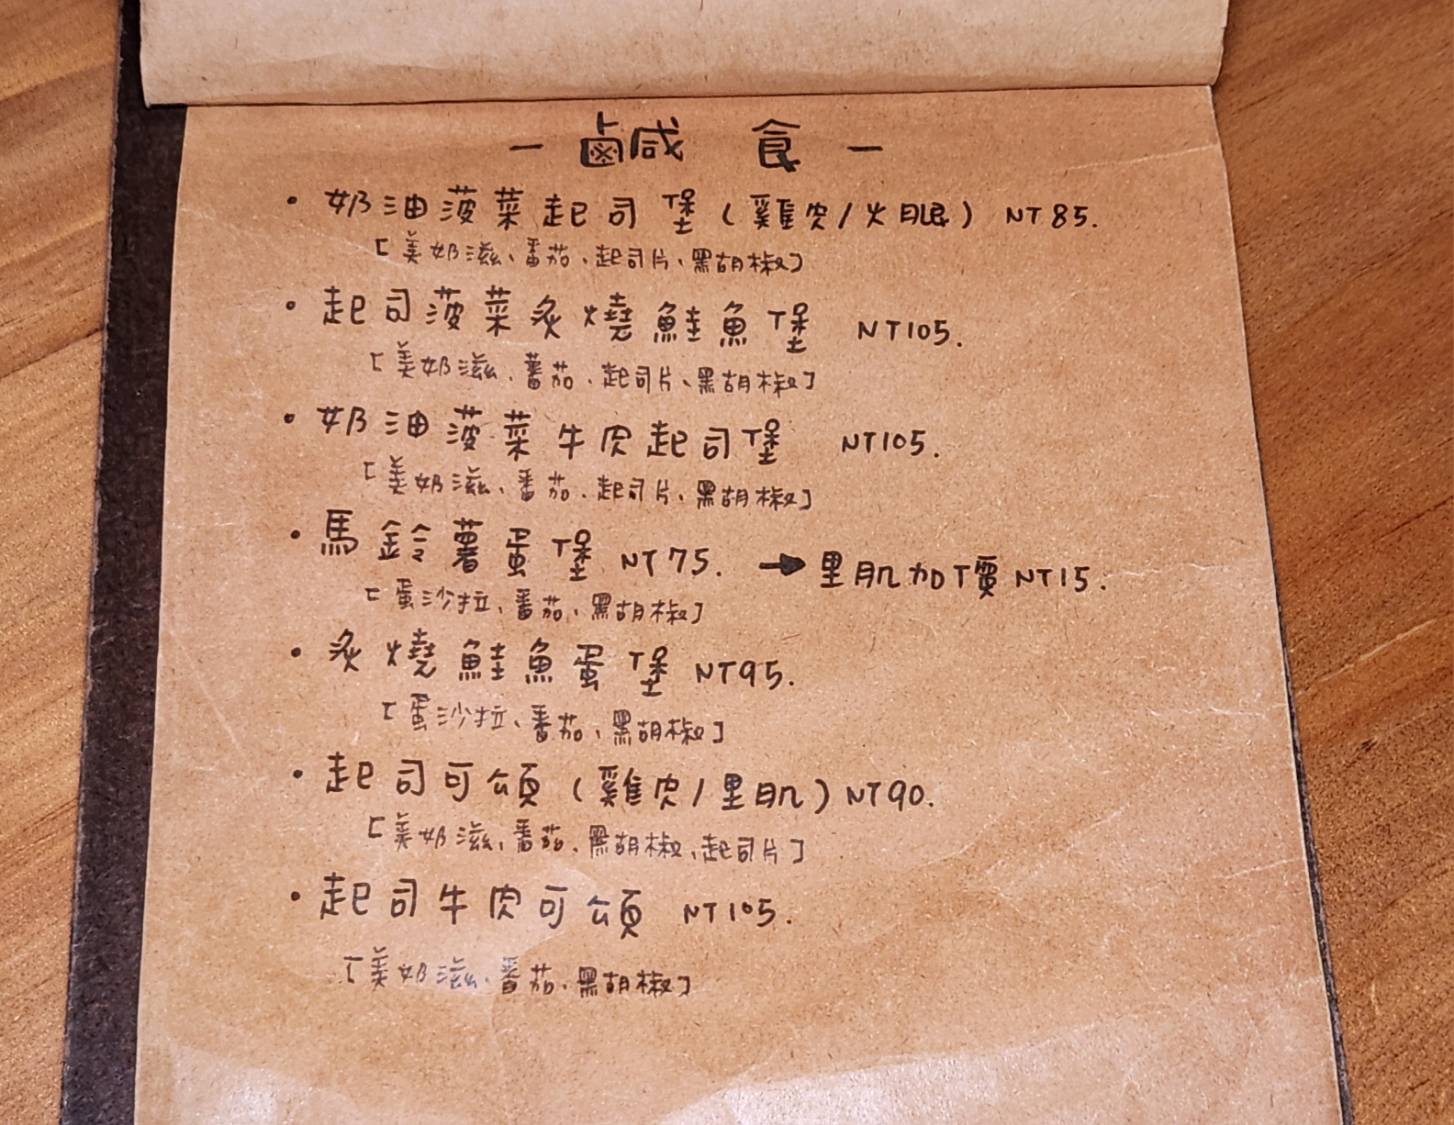 — 鹹 食 —
• 奶油菠菜起司堡(雞肉/火腿) NT85.
[美奶滋、番茄、起司片、黑胡椒]
• 起司菠菜炙燒鮭魚堡 NT105.
[美奶滋、蕃茄、起司片、黑胡椒]
• 奶油菠菜牛肉起司堡 NT105.
[美奶滋、番茄、起司片、黑胡椒]
• 馬鈴薯蛋堡 NT75. → 里肌加價 NT15.
[蛋沙拉、番茄、黑胡椒]
• 炙燒鮭魚蛋堡 NT95.
[蛋沙拉、番茄、黑胡椒]
• 起司可頌(雞肉/里肌) NT90.
[美奶滋、番茄、黑胡椒、起司片]
• 起司牛肉可頌 NT105.
[美奶滋、番茄、黑胡椒]